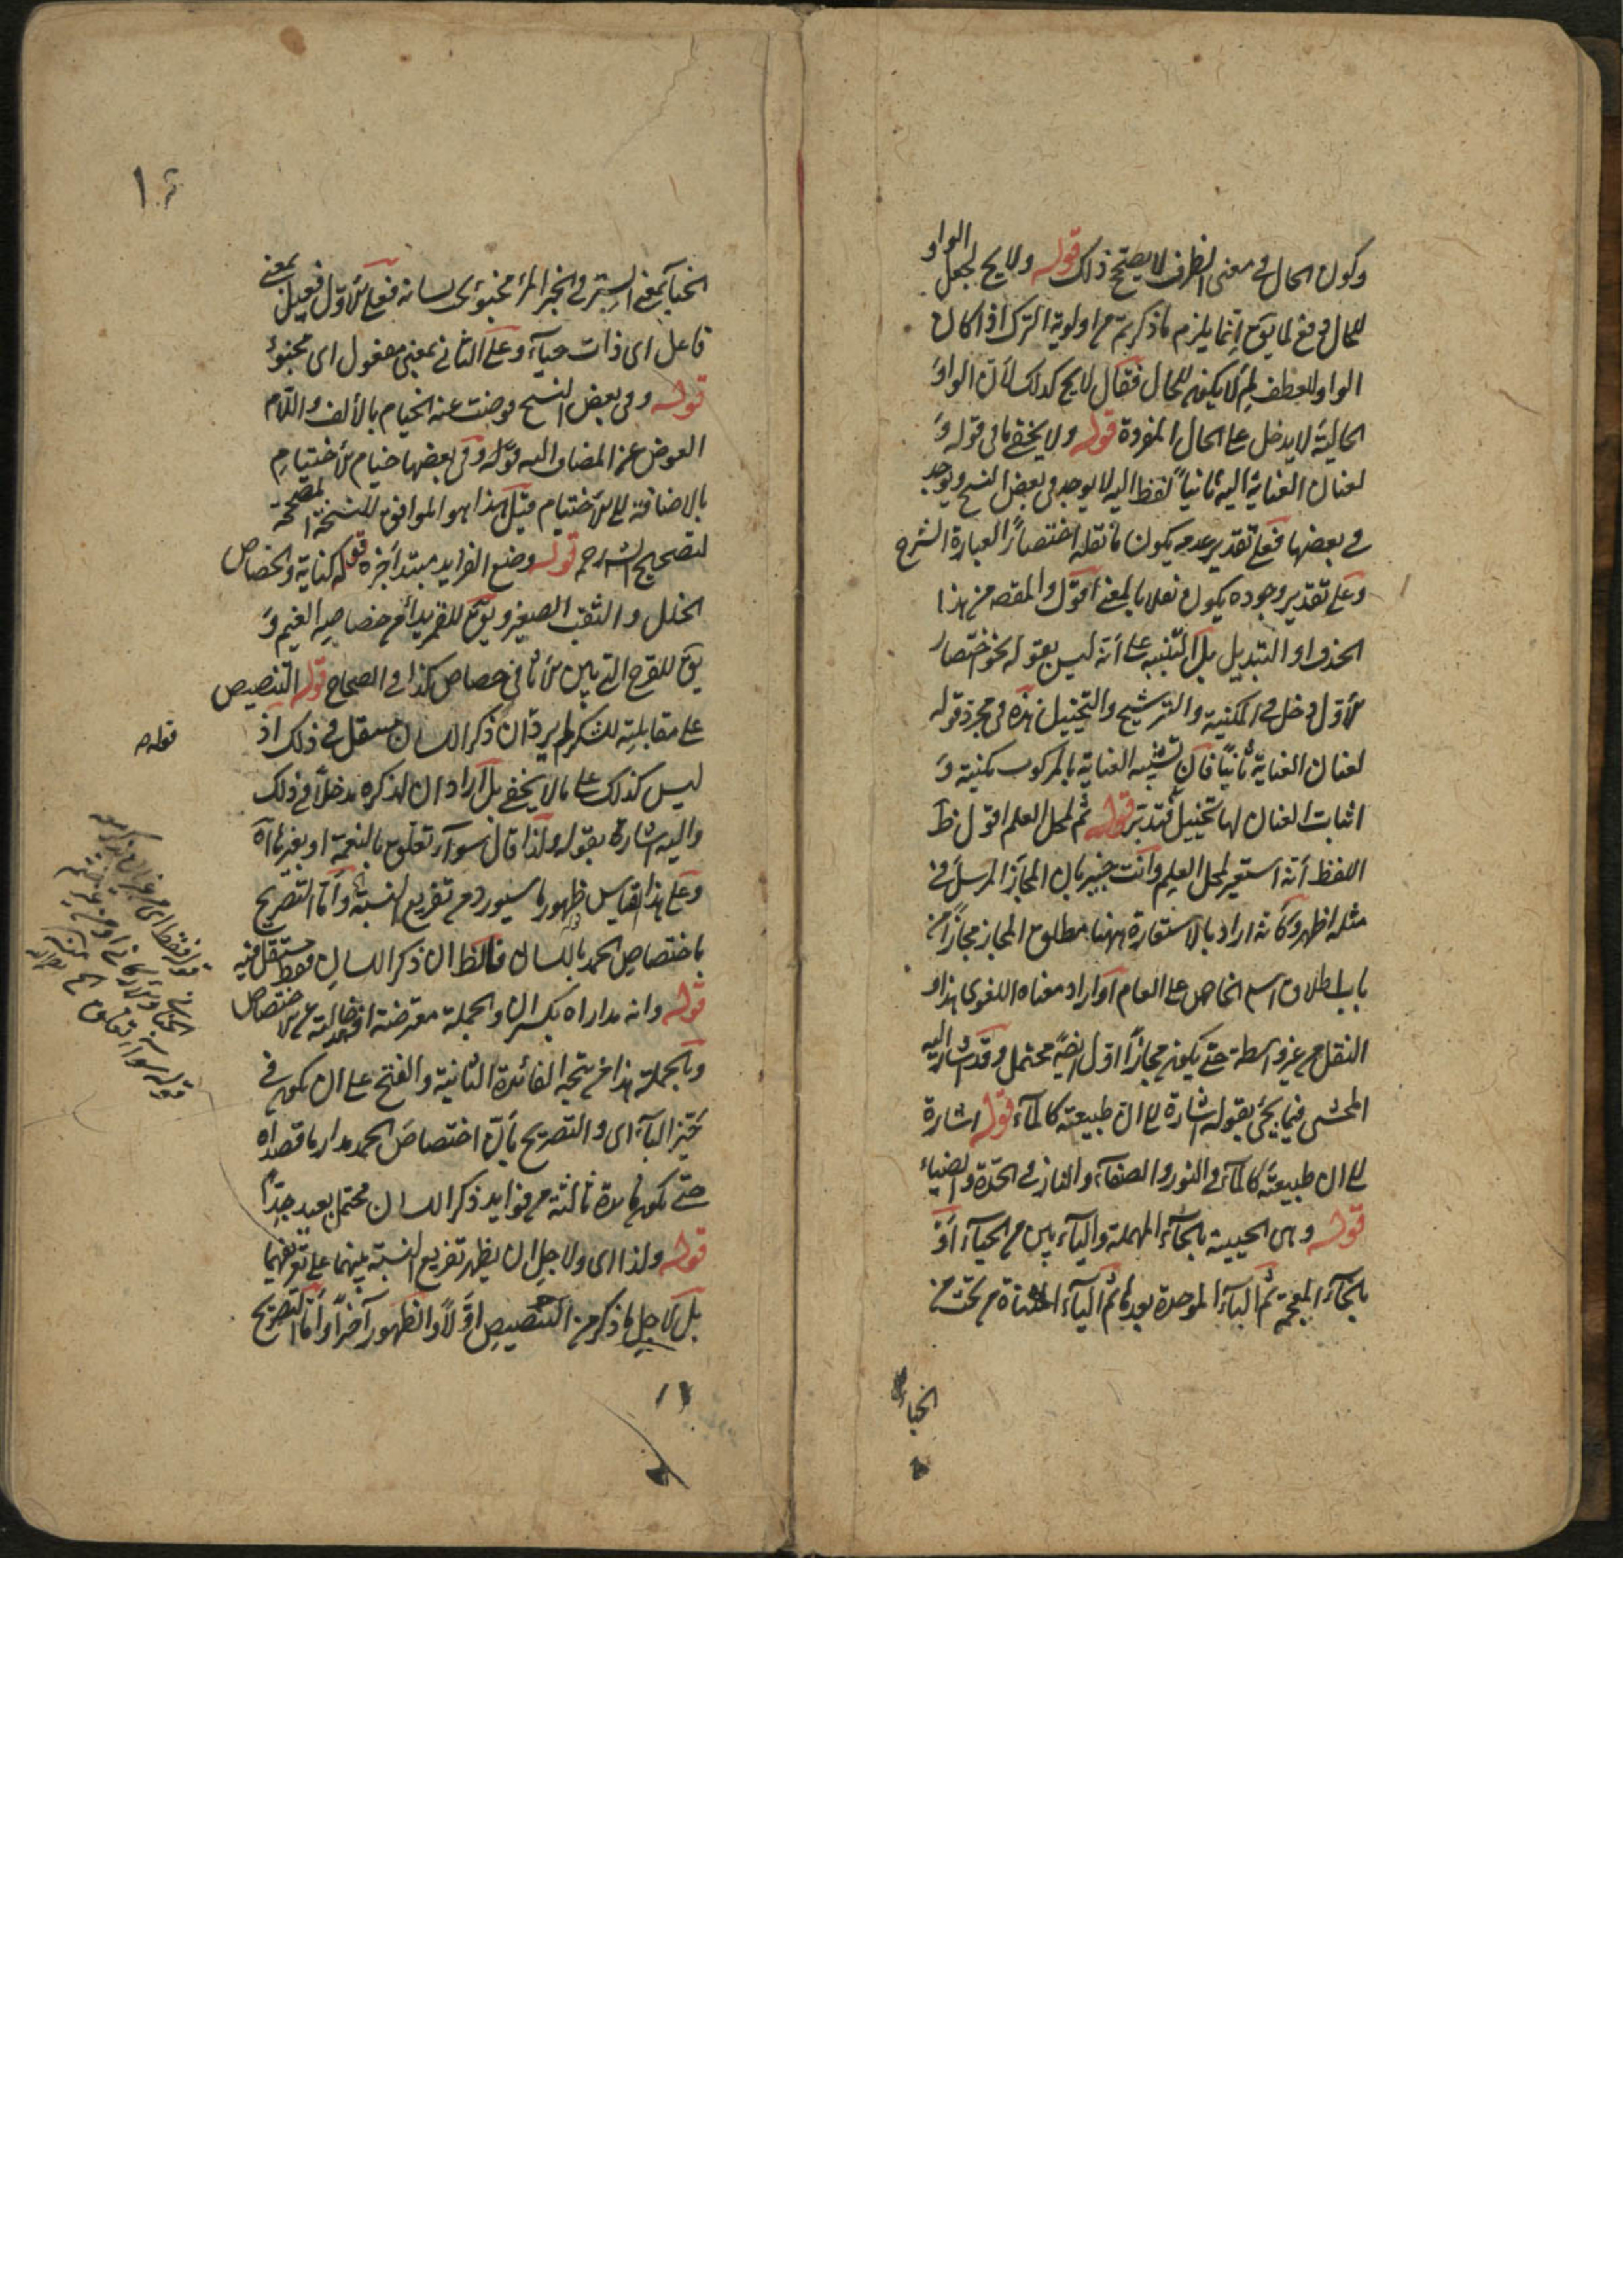 وكون الحال فى معنى الظرف لا يصحح ذلك قوله ولا يح لجعل الواو
للحال دفع لما يتوهم انما يلزم ما ذكرتم من اولوية الترك اذا كان
الواو للعطف لم لا يكون للحال فقال لا يح كذلك لأن الواو
الحالية لا يدخل على الحال المفردة قوله ولا يخفى ما فى قوله و
لعنان العناية اليه ثانياً لفظ اليه لا يوجد فى بعض النسخ ويوجد
فى بعضها فعلى تقدير عدمه يكون ما نقله اختصاراً لعبارة الشرح
وعلى تقدير وجوده يكون نقلا بالمعنى اقول والمقصد من هذا
الحذف او التبديل بل التنبيه على أنه ليس بقوله نحو اختصار
الأول دخل فى المكنية والترشيح والتخييل هذه فى مجرد قوله
لعنان العناية ثانياً فان تشبيه العناية بالمركوب مكنية و
اثبات العنان لها تخييل فتدبر قوله ثم لمحل العلم اقول ظ
اللفظ أنه استعير لمحل العلم وانت خبير بان المجاز المرسل فى
مثله اظهر وكأنه اراد بالاستعارة ههنا مطلق المجاز مجازاً من
باب اطلاق اسم الخاص على العام او اراد معناه اللغوى هذا و
النقل من غير واسطة حتى يكون مجازاً اول ايضً محتمل وقد اشار اليه
المحشى فيما يجئ بقوله اشارة الى ان طبيعته كالمآء قوله اشارة
الى ان طبيعته كالمآء فى النور والصفآء والنار فى الحدة والضياء
قوله وهى الحيية بالحآء المهملة واليآء بين من الحيآء أو
بالخآء المعجمة ثم البآء الموحدة بعدها ثم اليآء المثناة من تحت من
الخباء
الخبآء بمعنى الستر وفى الخبر المرء مخبوء تحت لسانه فعلى الأول فعيل بمعنى
فاعل اى ذات حيآء وعلى الثانى بمعنى مفعول اى مخبوء
قوله وفى بعض النسخ فوضت عنه الخيام بالألف واللام
العوض عن المضاف اليه قوله وفى بعضها خيام الأختيام
بالاضافة الى الأختيام قيل هذا هو الموافق للنسخة المصححة
لتصحيح الشارح قوله وضع الفرايد مبتدأ خبره قوله كناية والخصاص
الخلل والثقب الصغير ويق للقمر بدأ من خصاصه الغيم و
يق للفرج التى بين الأثافى خصاص كذا فى الصحاح قوله التنصيص
على مقابلته للشكر لم يرد ان ذكر اللسان مستقل فى ذلك اذ
ليس كذلك على ما لا يخفى بل اراد ان لذكره مدخلاً فى ذلك
واليه اشارة بقوله ولذا قال سوآء تعلق بالنعمة او بغيرها آه
وعلى هذا القياس ظهور ما سيورد من تفريع النسبة وأما التصريح
باختصاص الحمد باللسان فالظ ان ذكر اللسان فقط مستقل فيه
قوله وانه مداراه بكسر ان والجملة معترضة او حالية عن الاختصاص
وبالجملة هذا من تتمة الفائدة الثانية والفتح على ان يكون فى
حيز البآء اى والتصريح بأن اختصاص الحمد مدار ما قصداه
حتى يكون فائدة ثالثة من فوايد ذكر اللسان محتمل بعيد جداً
قوله ولذا اى ولاجل ان يظهر تفريع النسبة بينهما على تعريفهما
بل لاجل ما ذكر من التنصيص اوّلاً والظهور آخراً وأما التصريح